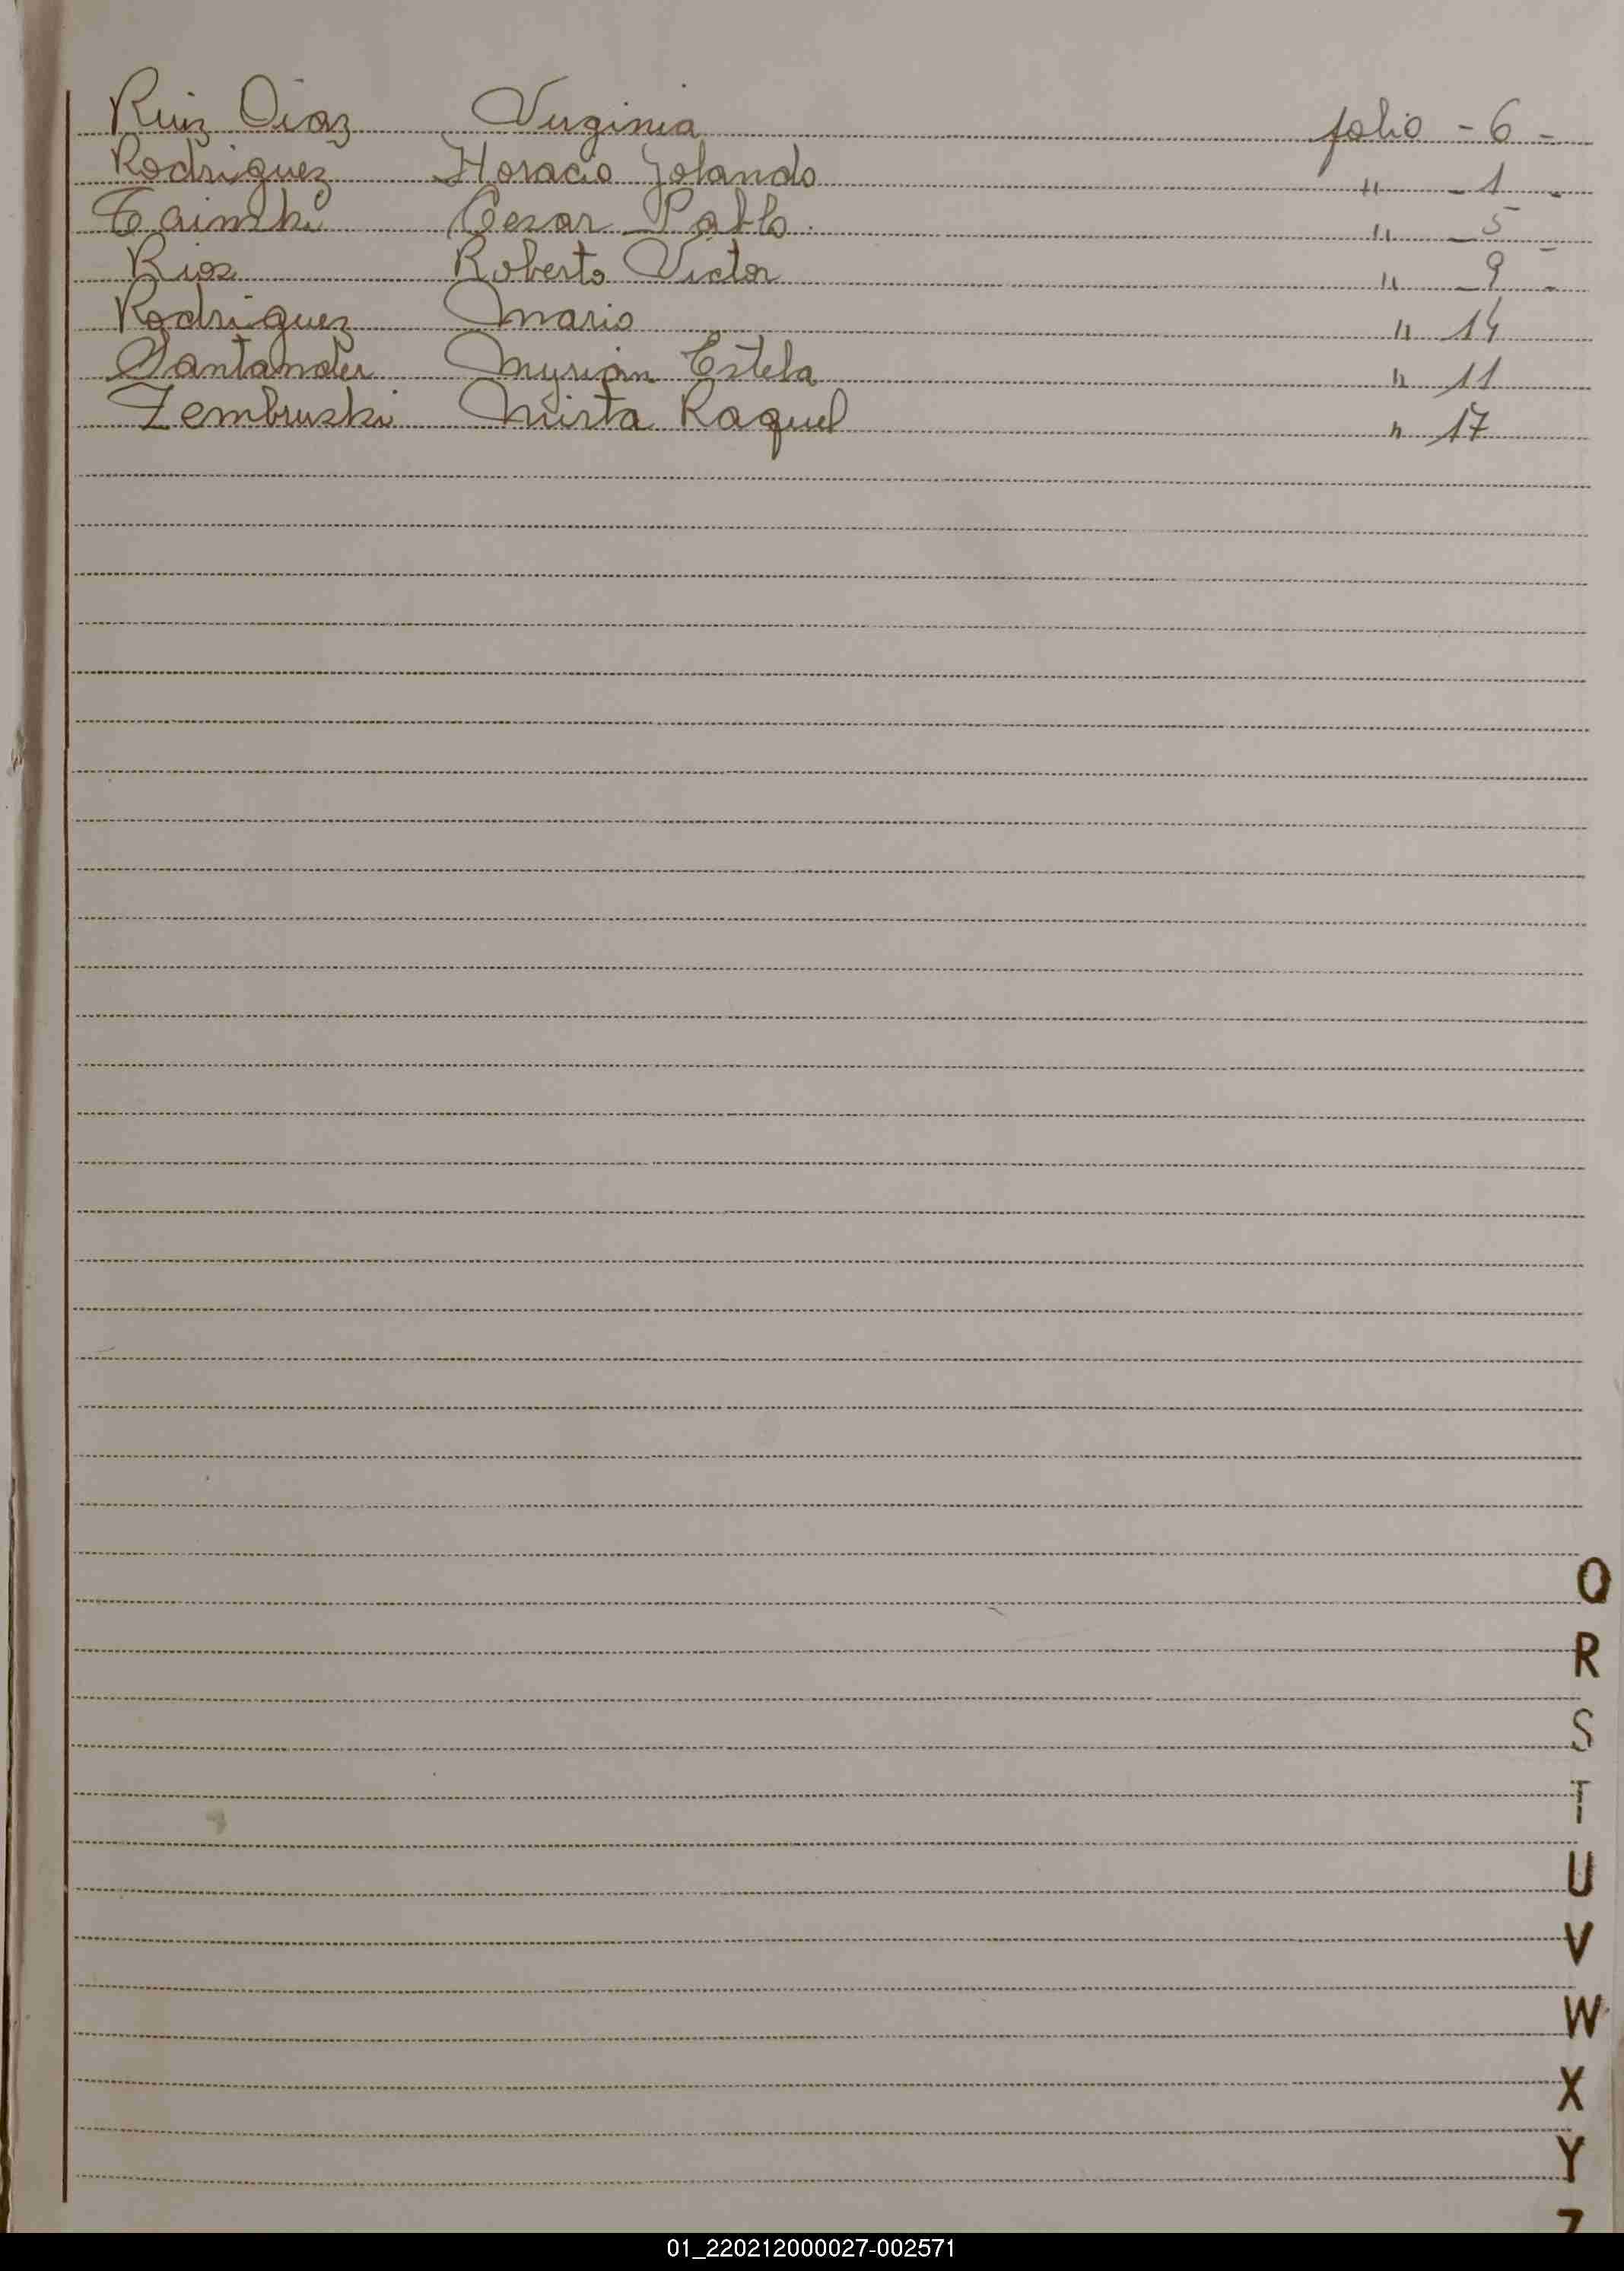 Ruiz Diaz Virginia folio - 6 -
Rodriguez Horacio Yolando " - 1 -
Cesar Pablo. " - 5 -
Rios Roberto Victor " - 9 -
Rodriguez Mario " 14
Santander Myrian Estela " 11
Zembruski Mirta Raquel " 17
Q
R
S
T
U
V
W
X
Y
Z
01_220212000027-002571